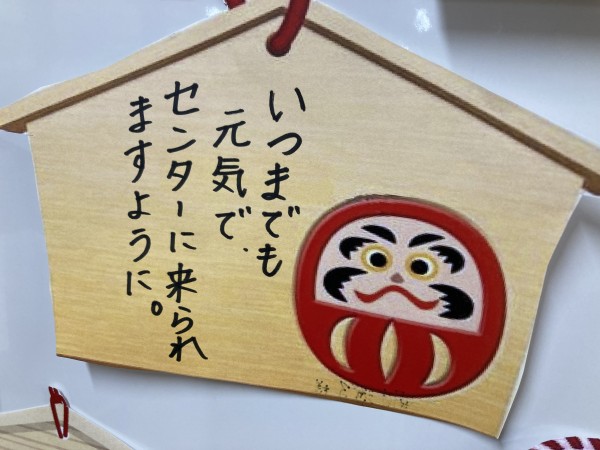 いつまでも
元気で、
センターに来られ
ますように。